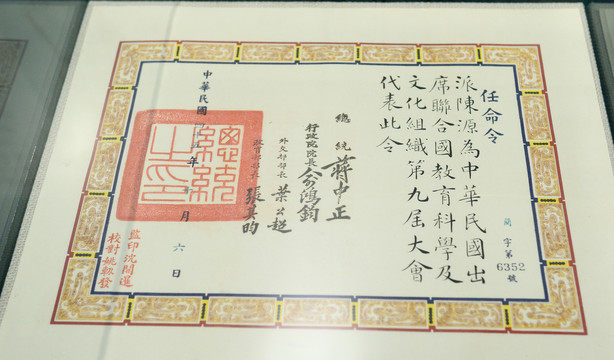 任命令
派陳源為中華民國出
席聯合國教育科學及
文化組織第九屆大會
代表此令
簡字第6352號
總統 蔣中正
行政院院長 俞鴻鈞
外交部部長 葉公超
教育部部長 張其昀
中華民國
年
月
六
日
總統之印
監印沈開運
校對姚報發